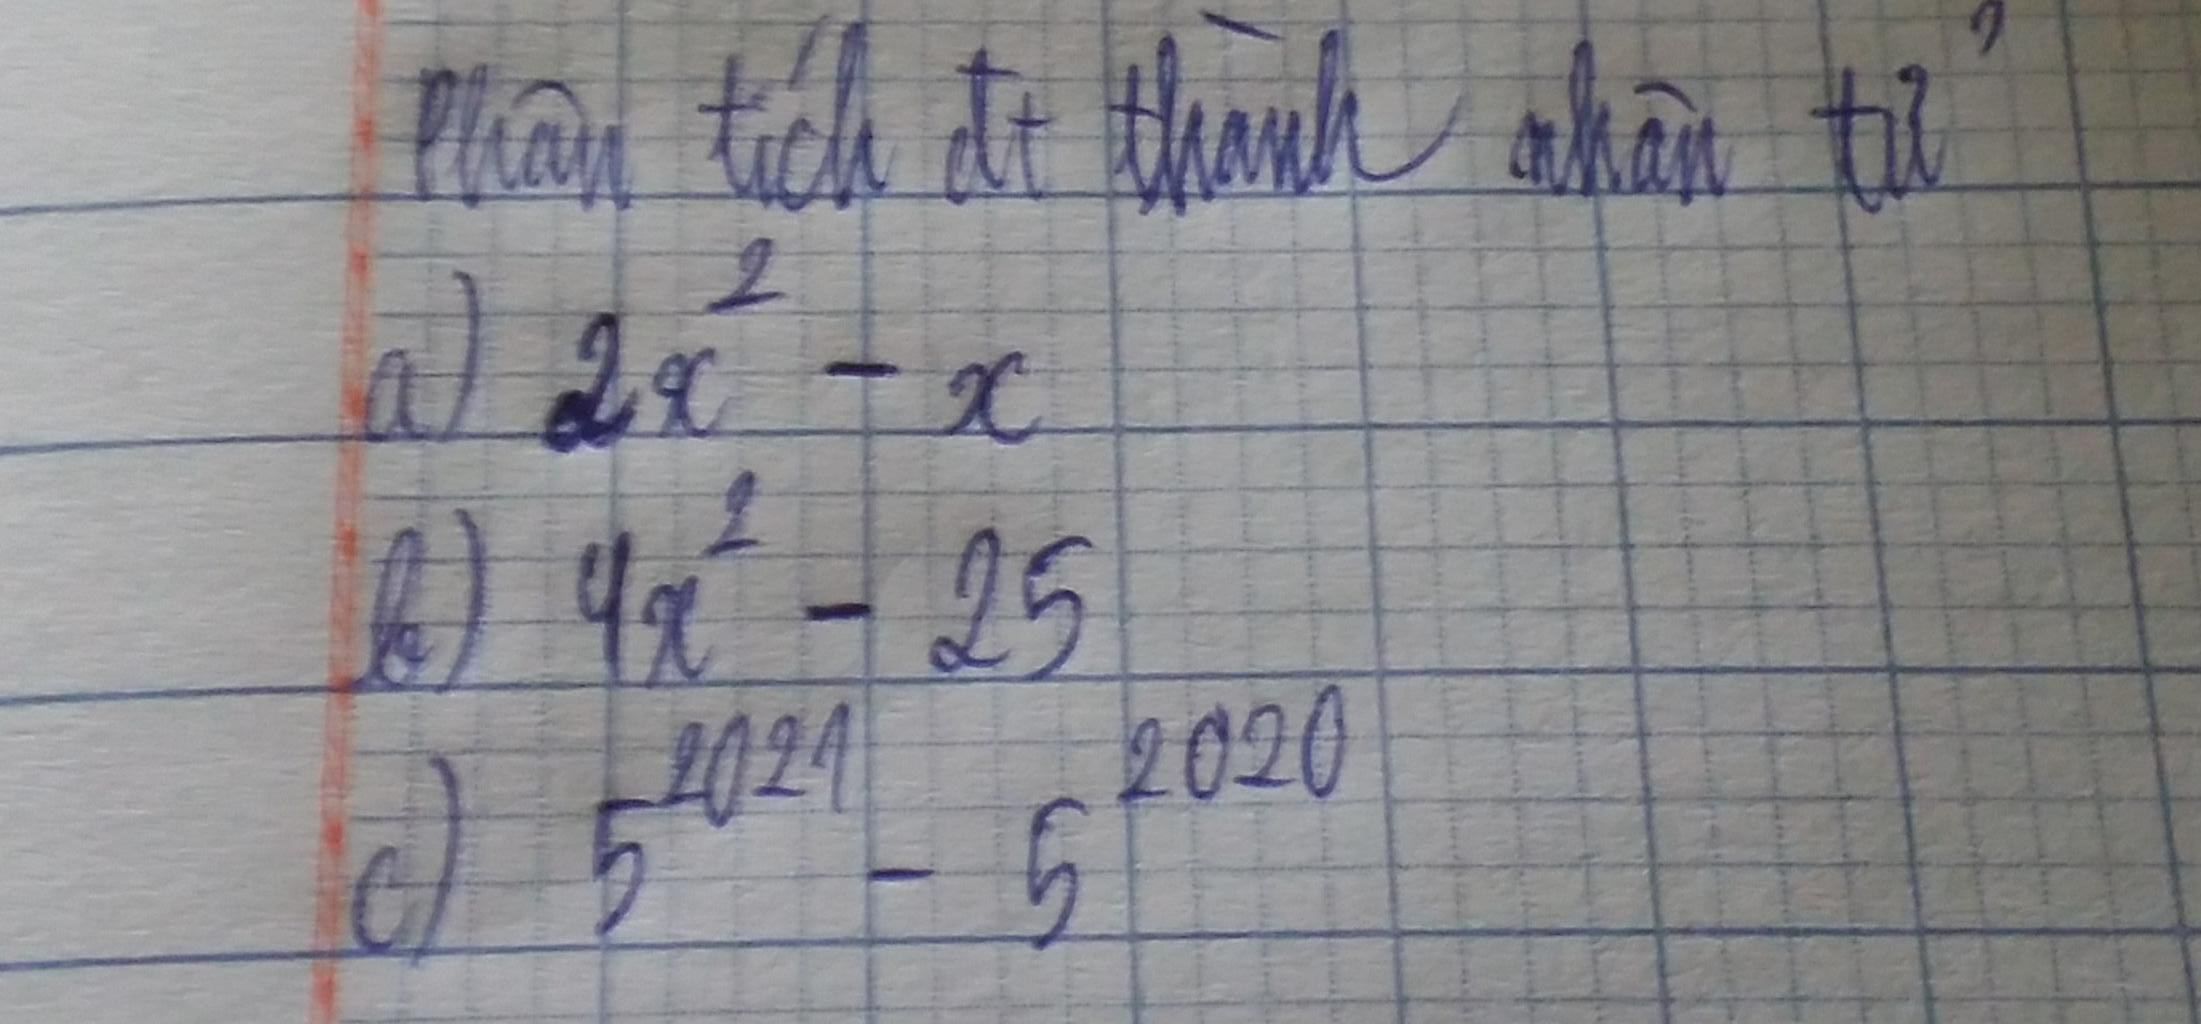 Phân tích đt thành nhân tử
a) 2x² - x
b) 4x² - 25
c) 5²⁰²¹ - 5²⁰²⁰